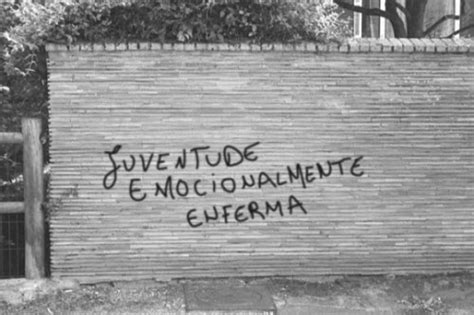 JUVENTUDE
EMOCIONALMENTE
ENFERMA